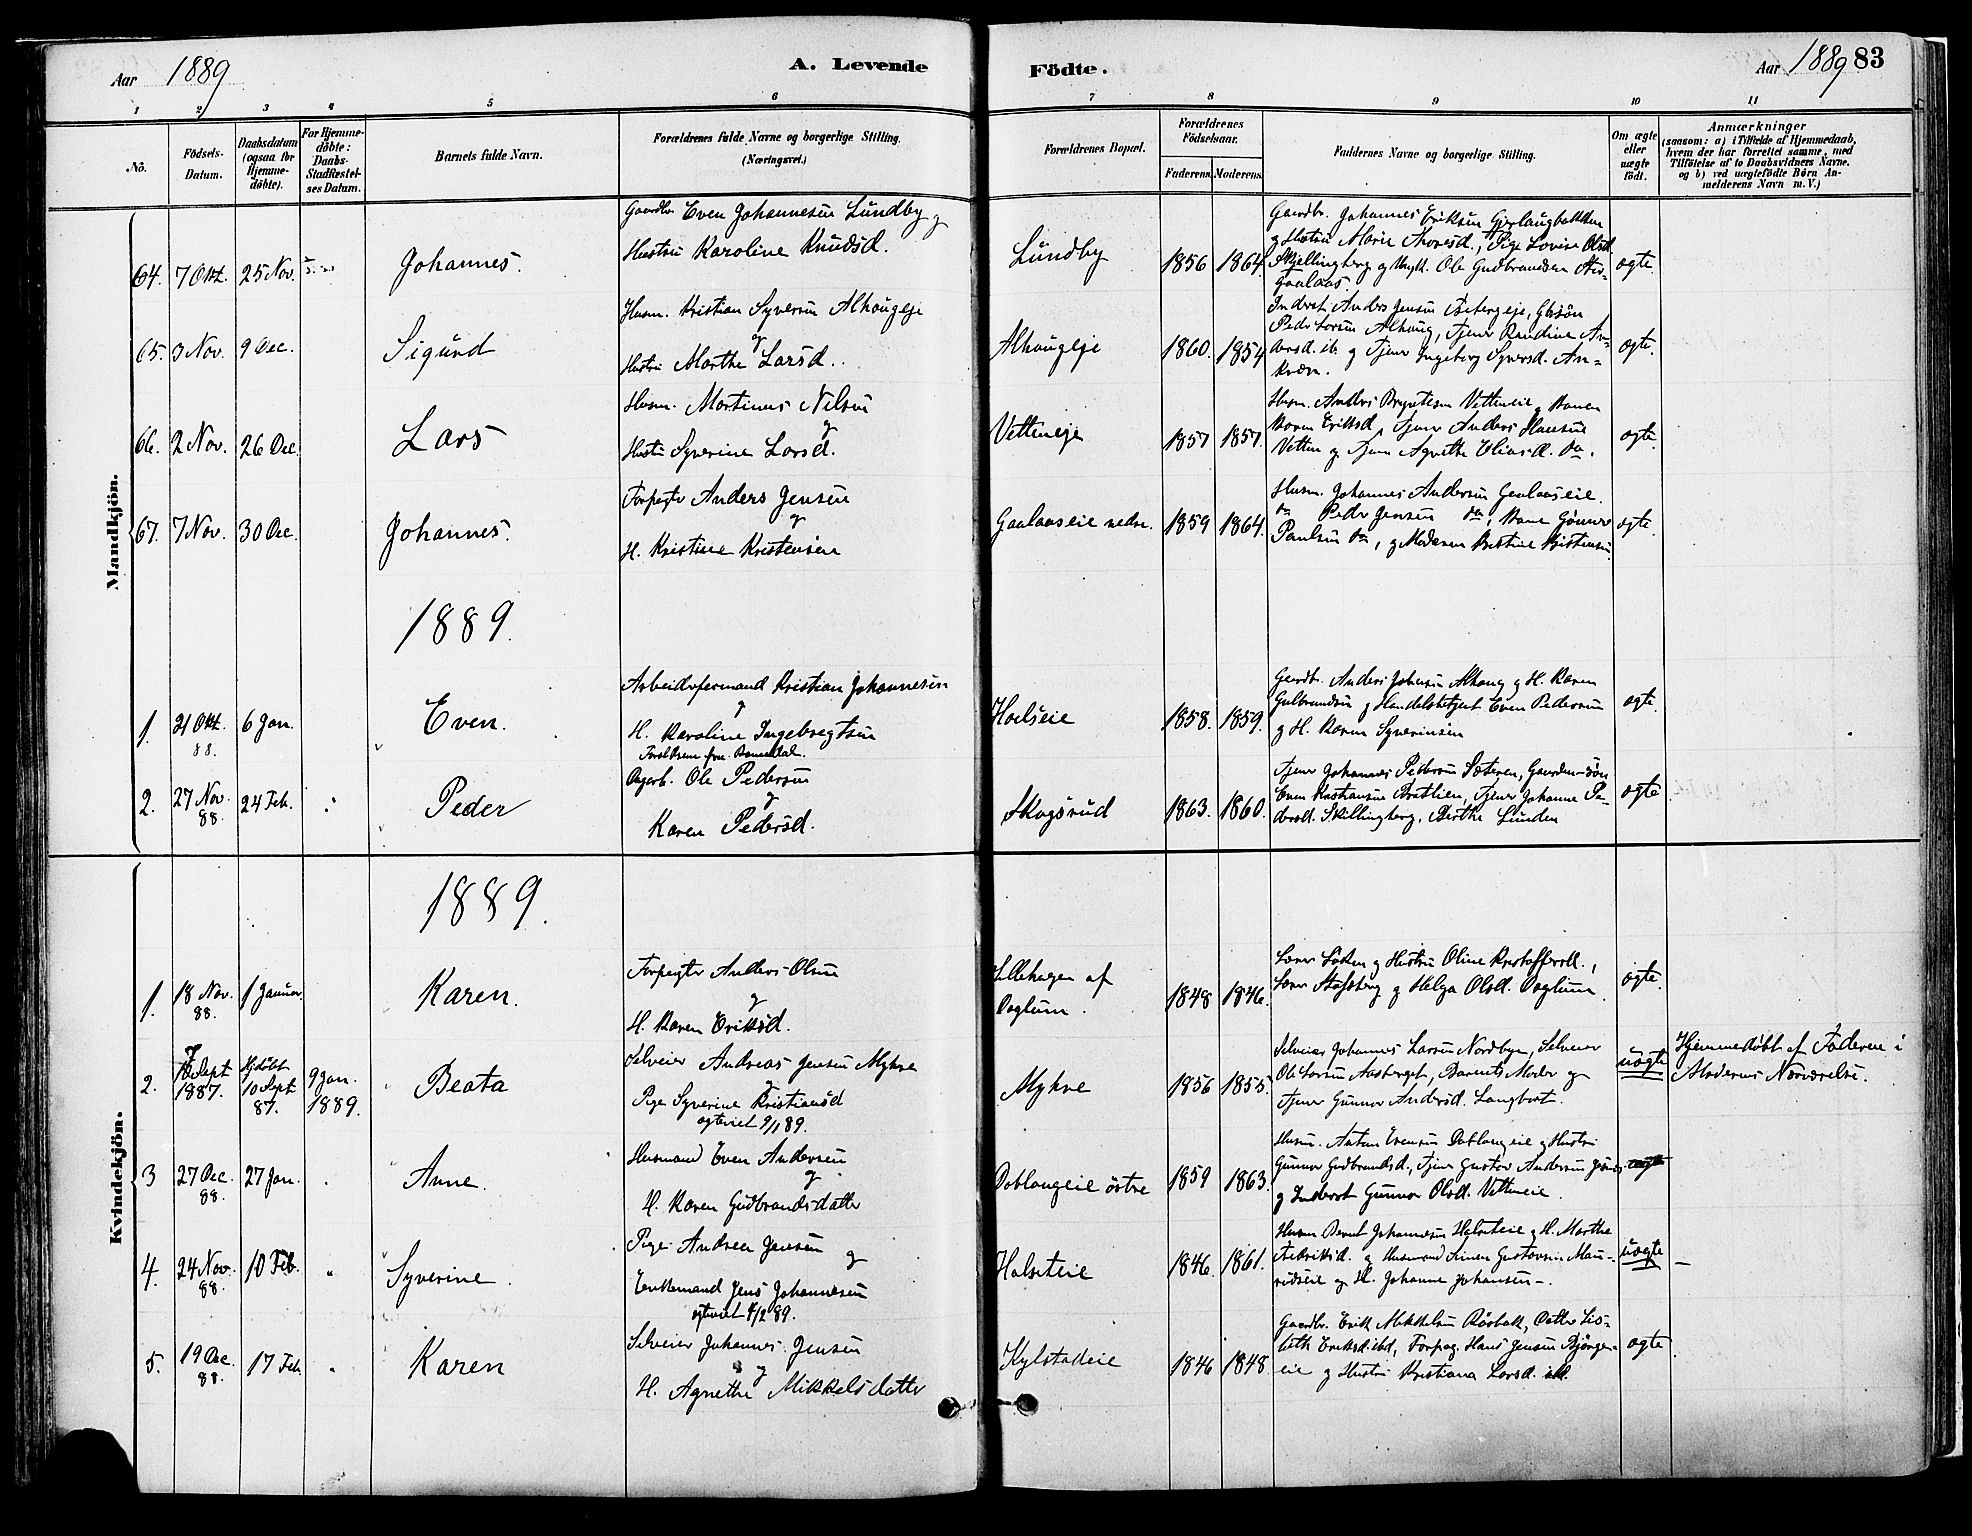 Aar 1889 A. Levende Födte. Aar 1889 83
1 2 3 4 5 6 7 8 9 10 11
Nô. Födsels-Datum. Daabsdatum (ogsaa for Hjemmedöbte). For Hjemmedöbte: Daabs-Stadfæstelses Datum. Barnets fulde Navn. Forældrenes fulde Navne og borgerlige Stilling. (Næringsvei.) Forældrenes Bopæl. Forældrenes Födselsaar. Faderens. Moderens. Faddernes Navne og borgerlige Stilling. Om ægte eller uægte födt. Anmærkninger (saasom: a) i Tilfælde af Hjemmedaab, hvem der har forrettet samme, med Tilföielse af to Daabsvidners Navne. og b) ved uægtefödte Börn Anmelderens Navn m. V.)
Mandkjön.
64. 7 Okt. 25 Nov. Johannes. Gaardbr Even Johannesen Lundby og
Hustru Karoline Knudsd. Lundby 1856 1864. Gaardbr. Johannes Eriksen
g Hustru Marie Thoresd., Pige Lovise Olsd.
Skjellingberg g Ungk. Ole Gudbrandsen
Gaalaas. ægte.
65. 3 Nov. 9 Dec. Sigurd Husm. Kristian Syversen Alhaugeje
g
Hustru Marthe Larsd. Alhaugeje 1860. 1854 Inderst. Anders Jensen
Peder Larsen Alhaug, Tjener
Andersd. ib. g Tjener Ingeborg Syversd. ægte.
66. 2 Nov. 26 Dec. Lars Husm. Martinus Nilsen
g
Hustru Syverine Larsd. Vetteneje 1857 1857. Husm. Anders Vetteneie, Konen
Karen Eriksd., Tjener Anders Hansen
Vetten g Tjener Agnethe Eliasd. do. ægte.
67. 7 Nov. 30 Dec. Johannes. Forpagter Anders Jensen
g
H. Kristine Kristensen Gaalaaseie nedre. 1859 1864. Husm. Johannes Andersen Gaalaaseie.
do Peder Jensen do, Kone
Paulsen do, g Moderen Kristine Kristensen ægte.
1889.
1. 21 Okt. 88. 6 Jan. Even. Arbeidsformand Kristian Johannesen
g
H. Karoline Ingebregtsen
Hoelseie 1858. 1859. Gaardbr. Anders Johnsen Alhaug g H. Karen
Gulbrandsen g Even Pedersen
g H. Karen Syverinsen ægte.
2. 27 Nov. 88. 24 Feb. Peder Dagarb. Ole Pedersen
g
Karen Pedersd. Skogsrud 1863. 1860. Tjener Johannes Pedersen Sæteren, Gaardm.søn
Even Kristiansen Brattlien, Tjener Johanne Pedersd.
Skillingberg, Berthe Lunden ægte
Kvindekjön.
1889.
1. 18 Nov. 88. 1 Januar. Karen. Forpagter Anders Olsen
g
H. Karen Eriksd. Lillehagen af
Doglum. 1848 1846. Lærer g Hustru Oline Kristoffersd.,
Lærer g Helga Olsd. Doglum. ægte.
2. 7 Sept 1887. Hjdøbt 10 Sept 87. 9 Jan. 1889. Beata Selveier Andreas Jensen Myhre
g
Pige Syverine Kristiansd
ægteviet 9/1 89. Myhre 1856 1855. Selveier Johannes Larsen Nordbye, Selveier
Ole Larsen Aasberget, Barnets Moder og
Tjener Gunnor Andersd. Langbret. uægte Hjemmedøbt af Faderen i
Moderens Nærværelse.
3 27 Dec. 88. 27 Jan. Anne. Husmand Even Andersen
g
H. Karen Gudbrandsdatter Doblougeie østre 1859 1863. Husm. Anton Evensen Doblougeie g Hustru
Gunnor Gudbrandsd., Tjener Gustav Andersen
g Inderst Gunnor Olsd. Vetteneie. ægte
4. 24 Nov. 88. 10 Feb. Syverine. Pige Andrea Jensen g
Enkemand Jens Johannesen
ægteviet 4/2 89. Holseteie 1846. 1861. Husm Bernt Johannesen Holseteie g H. Marthe
Fredriksd. g Husmand Simen Gustavsen
g H. Johanne Johansen. uægte
5. 19 Dec. 88. 17 Feb. Karen Selveier Johannes Jensen
g
H. Agnethe Mikkelsdatter Kylstadeie 1846 1848 Gaardbr. Erik Mikkelsen, Datter Lisbeth
Eriksd. ibd, Forpag. Hans Jensen
g Hustru Kristiana Larsd. ibd. ægte